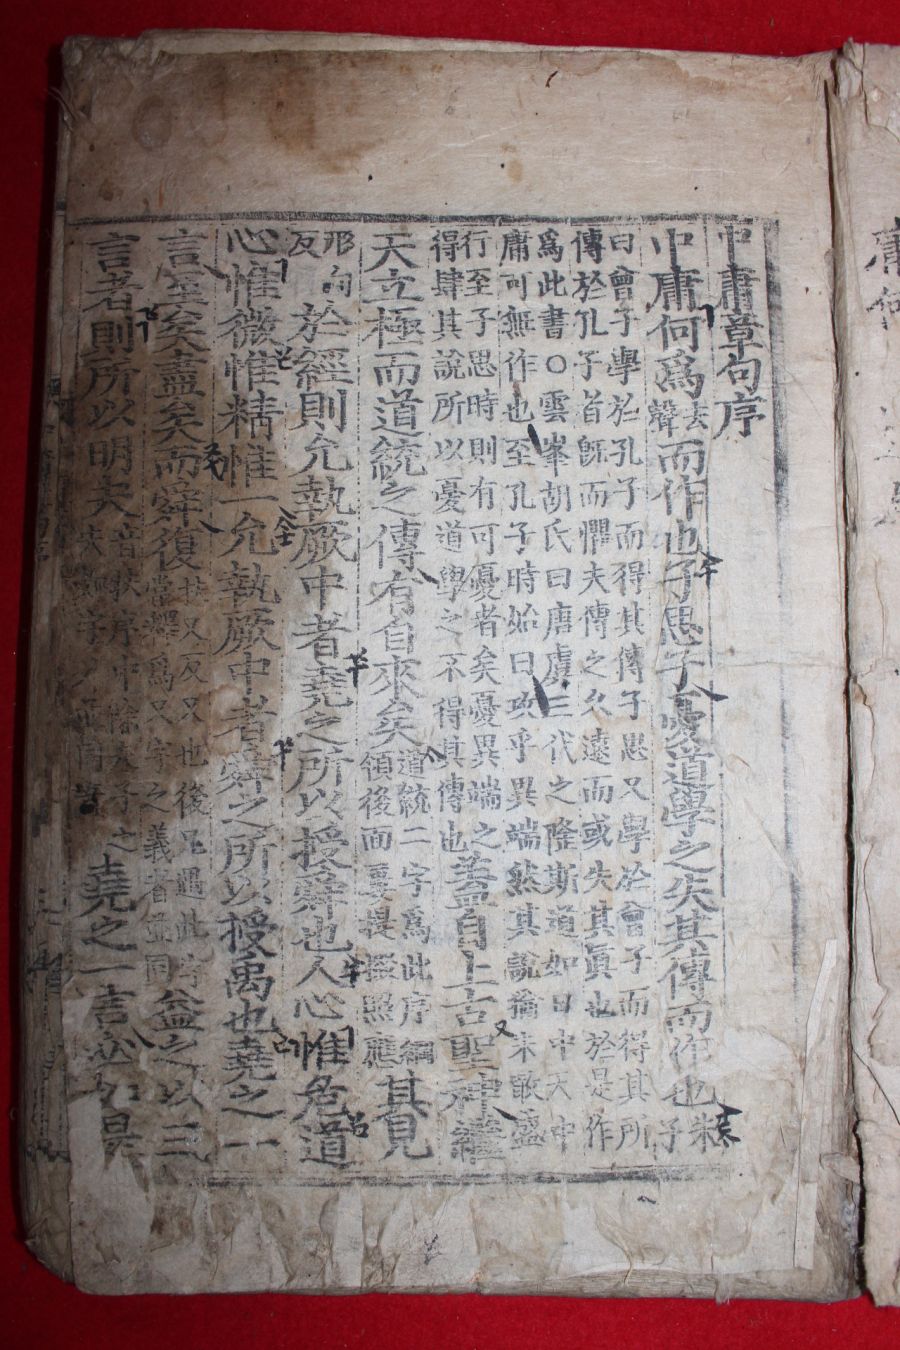 中庸章句序
中庸何爲去聲而作也子思子憂道學之失其傳而作也朱子
曰曾子學於孔子而得其傳子思又學於曾子而得其所
傳於孔子者旣而懼夫傳之久遠而或失其眞也於是作
爲此書○雲峯胡氏曰唐虞三代之隆斯道如日中天中
庸可無作也至孔子時始曰攻乎異端然其說猶未敢盛
行至子思時則有可憂者矣憂異端之
得肆其說所以憂道學之不得其傳也蓋自上古聖神繼
天立極而道統之傳有自來矣道統二字爲此序綱領後面要畏提照應其見
形甸反於經則允執厥中者堯之所以授舜也人心惟危道
心惟微惟精惟一允執厥中者舜之所以授禹也堯之一
言至矣盡矣而舜復
也後凡遇此
當釋爲又字之義者並同益之以三
言者則所以明夫音扶序中除夫子之
堯之一言必如是